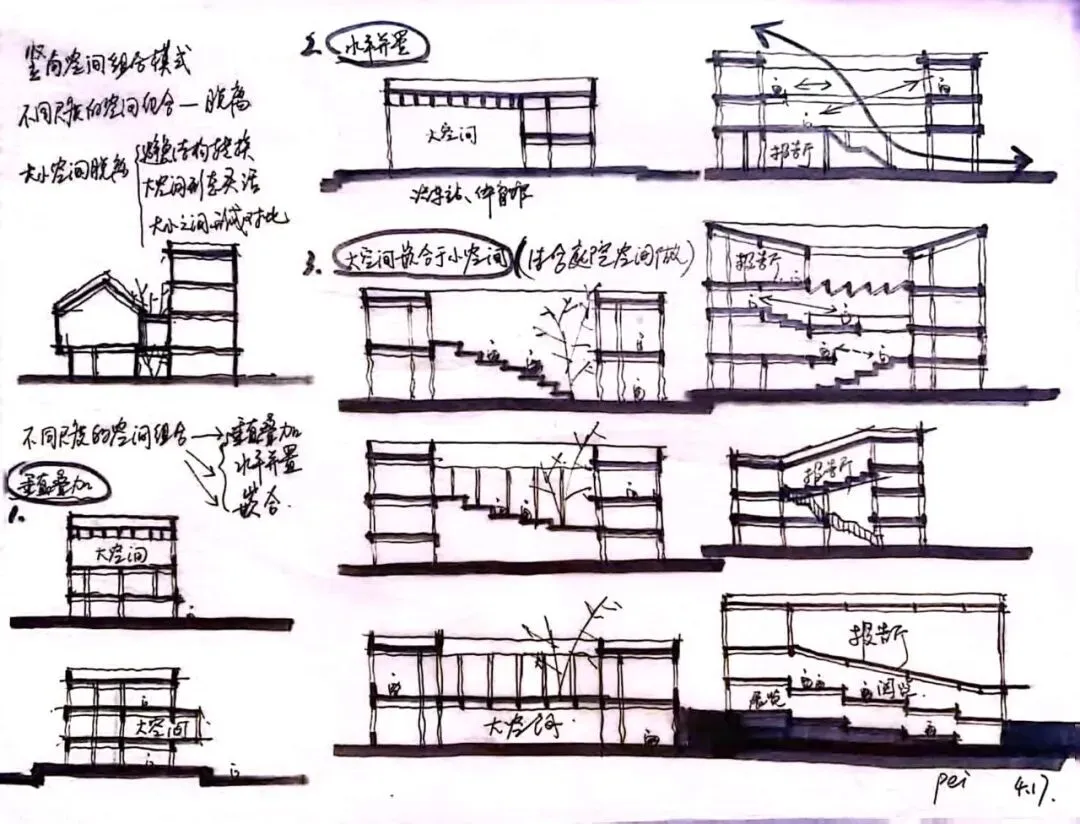 竖向空间组合模式
不同尺度的空间组合—脱离
大小空间脱离
避免结构转换
大空间形态灵活
大小之间形成对比
不同尺度的空间组合→垂直叠加
水平并置
嵌合.
1. 垂直叠加
大空间
大空间
2. 水平并置
大空间
火车站、体育馆
报告厅
3. 大空间嵌合于小空间(结合庭院空间做)
报告厅
报告厅
大空间
报告厅
展览
阅览
pei 4.17.